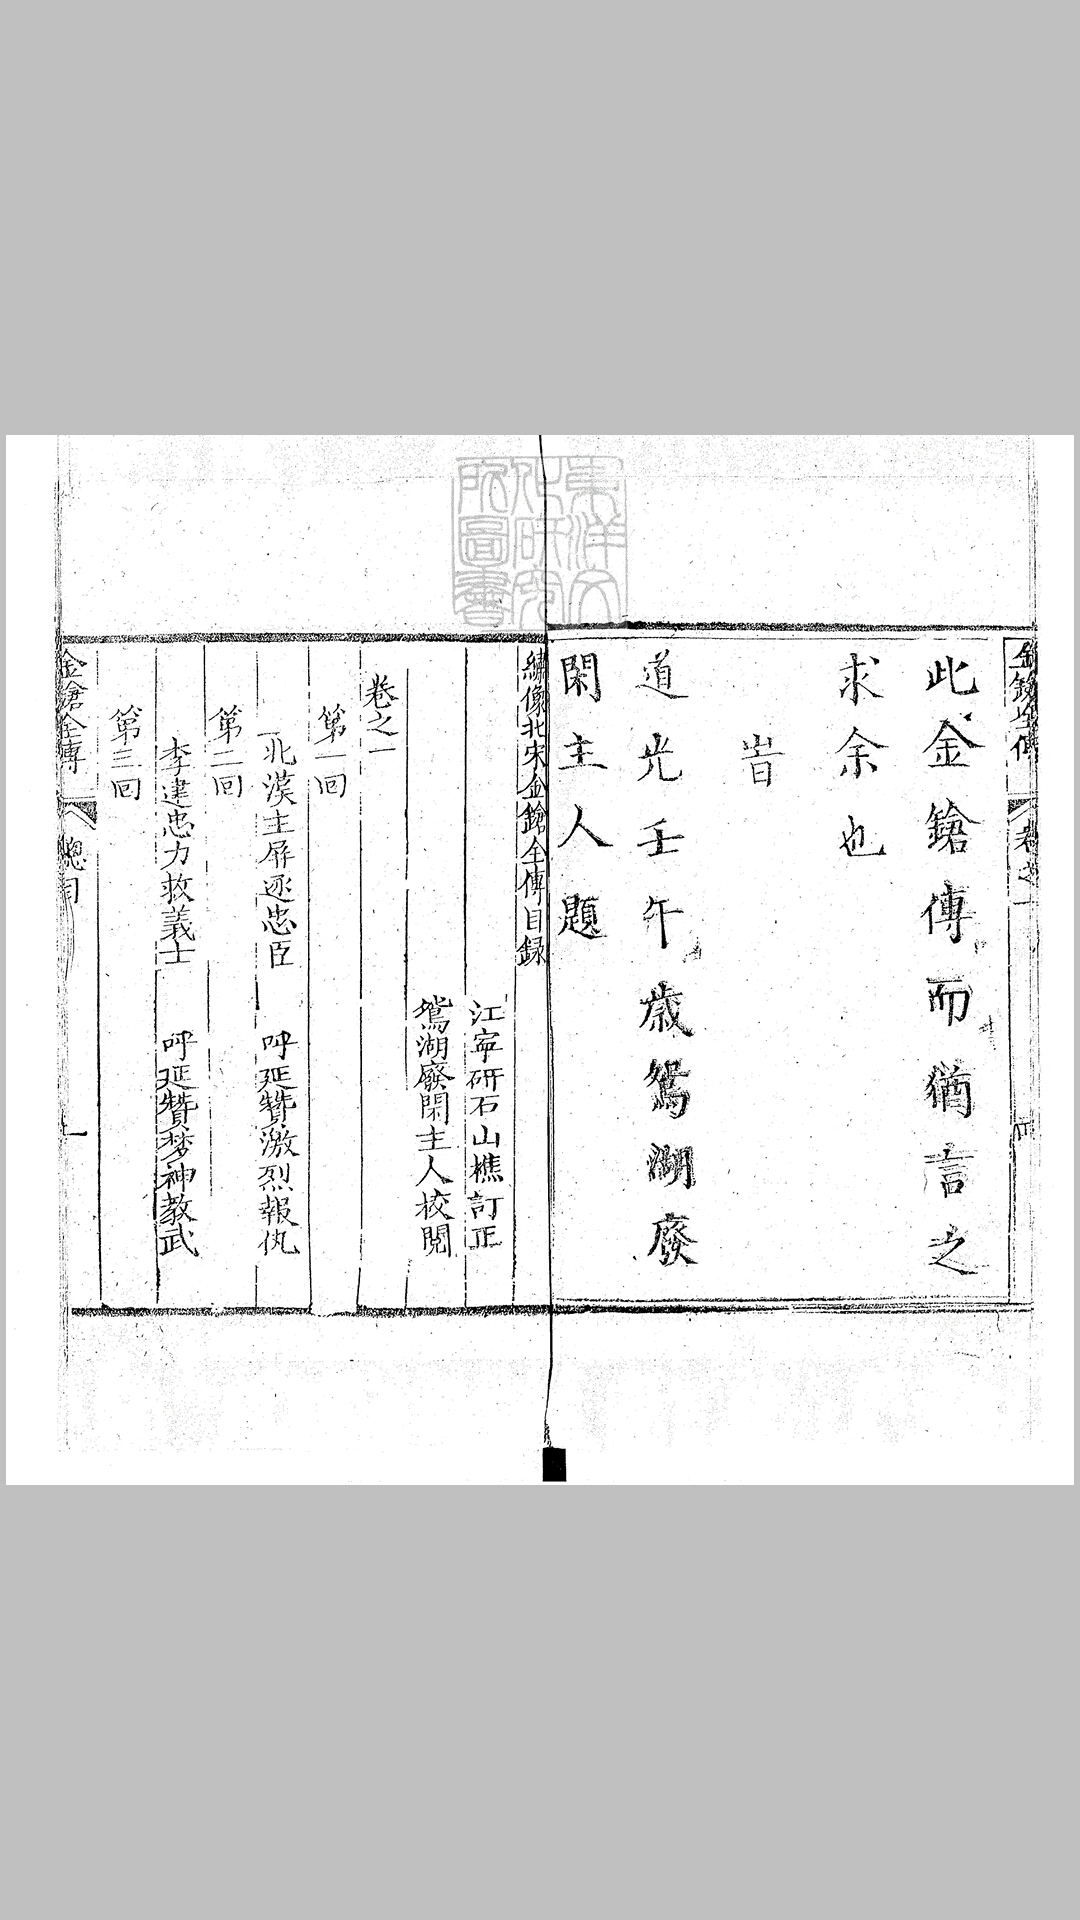 金鎗全傳 卷之一
此金鎗傳而猶言之
求余也
旹
道光壬午歲鴛湖廢
閑主人題
東洋文化研究所圖書
繡像北宋金鎗全傳目録
江寕研石山樵訂正
鴛湖廢閑主人校閱
卷之一
第一回
北漠主屏逐忠臣 呼延贊激烈報仇
第二回
李建忠力救義士 呼延贊梦神教武
第三回
金鎗全傳 總目 一